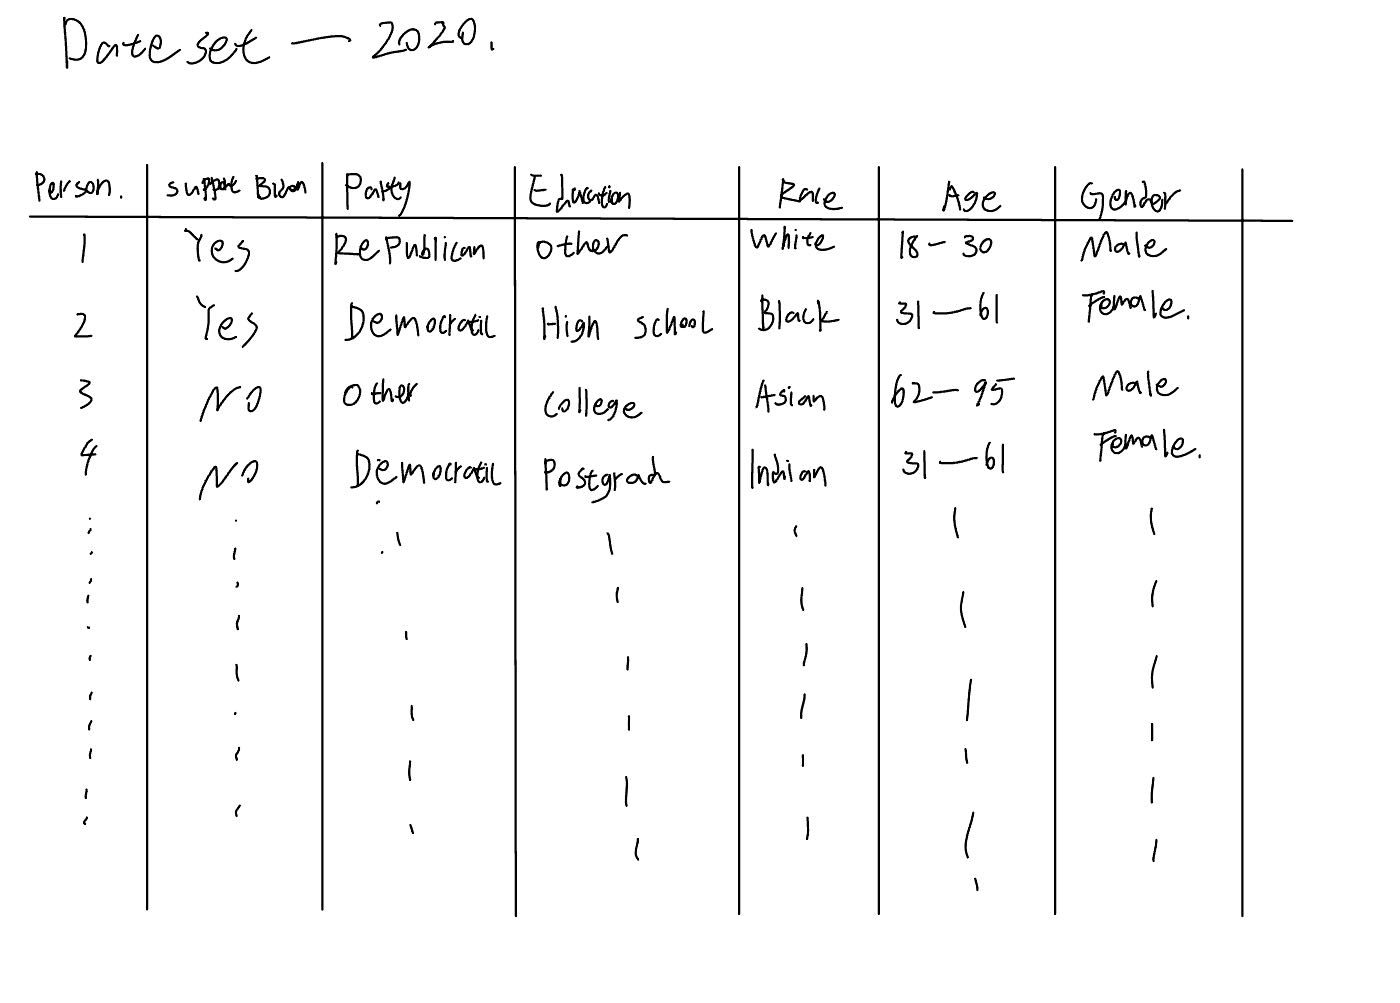 Dateset — 2020.
Person. support Biden Party Education Race Age Gender
1 Yes Republican other White 18-30 Male
2 Yes Democratic High school Black 31-61 Female.
3 NO other College Asian 62-95 Male
4 NO Democratic Postgrad Indian 31-61 Female.